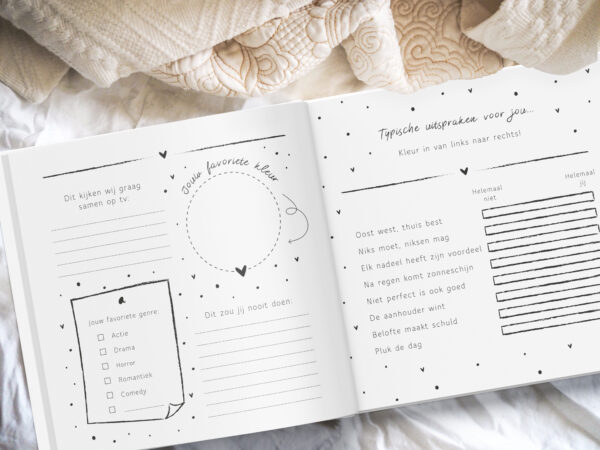 Dit kijken wij graag
samen op tv:
Jouw favoriete kleur
Jouw favoriete genre:
Actie
Drama
Horror
Romantiek
Comedy
Dit zou jij nooit doen:
Typische uitspraken voor jou...
Kleur in van links naar rechts!
Helemaal
niet
Helemaal
jij
Oost west, thuis best
Niks moet, niksen mag
Elk nadeel heeft zijn voordeel
Na regen komt zonneschijn
Niet perfect is ook goed
De aanhouder wint
Belofte maakt schuld
Pluk de dag